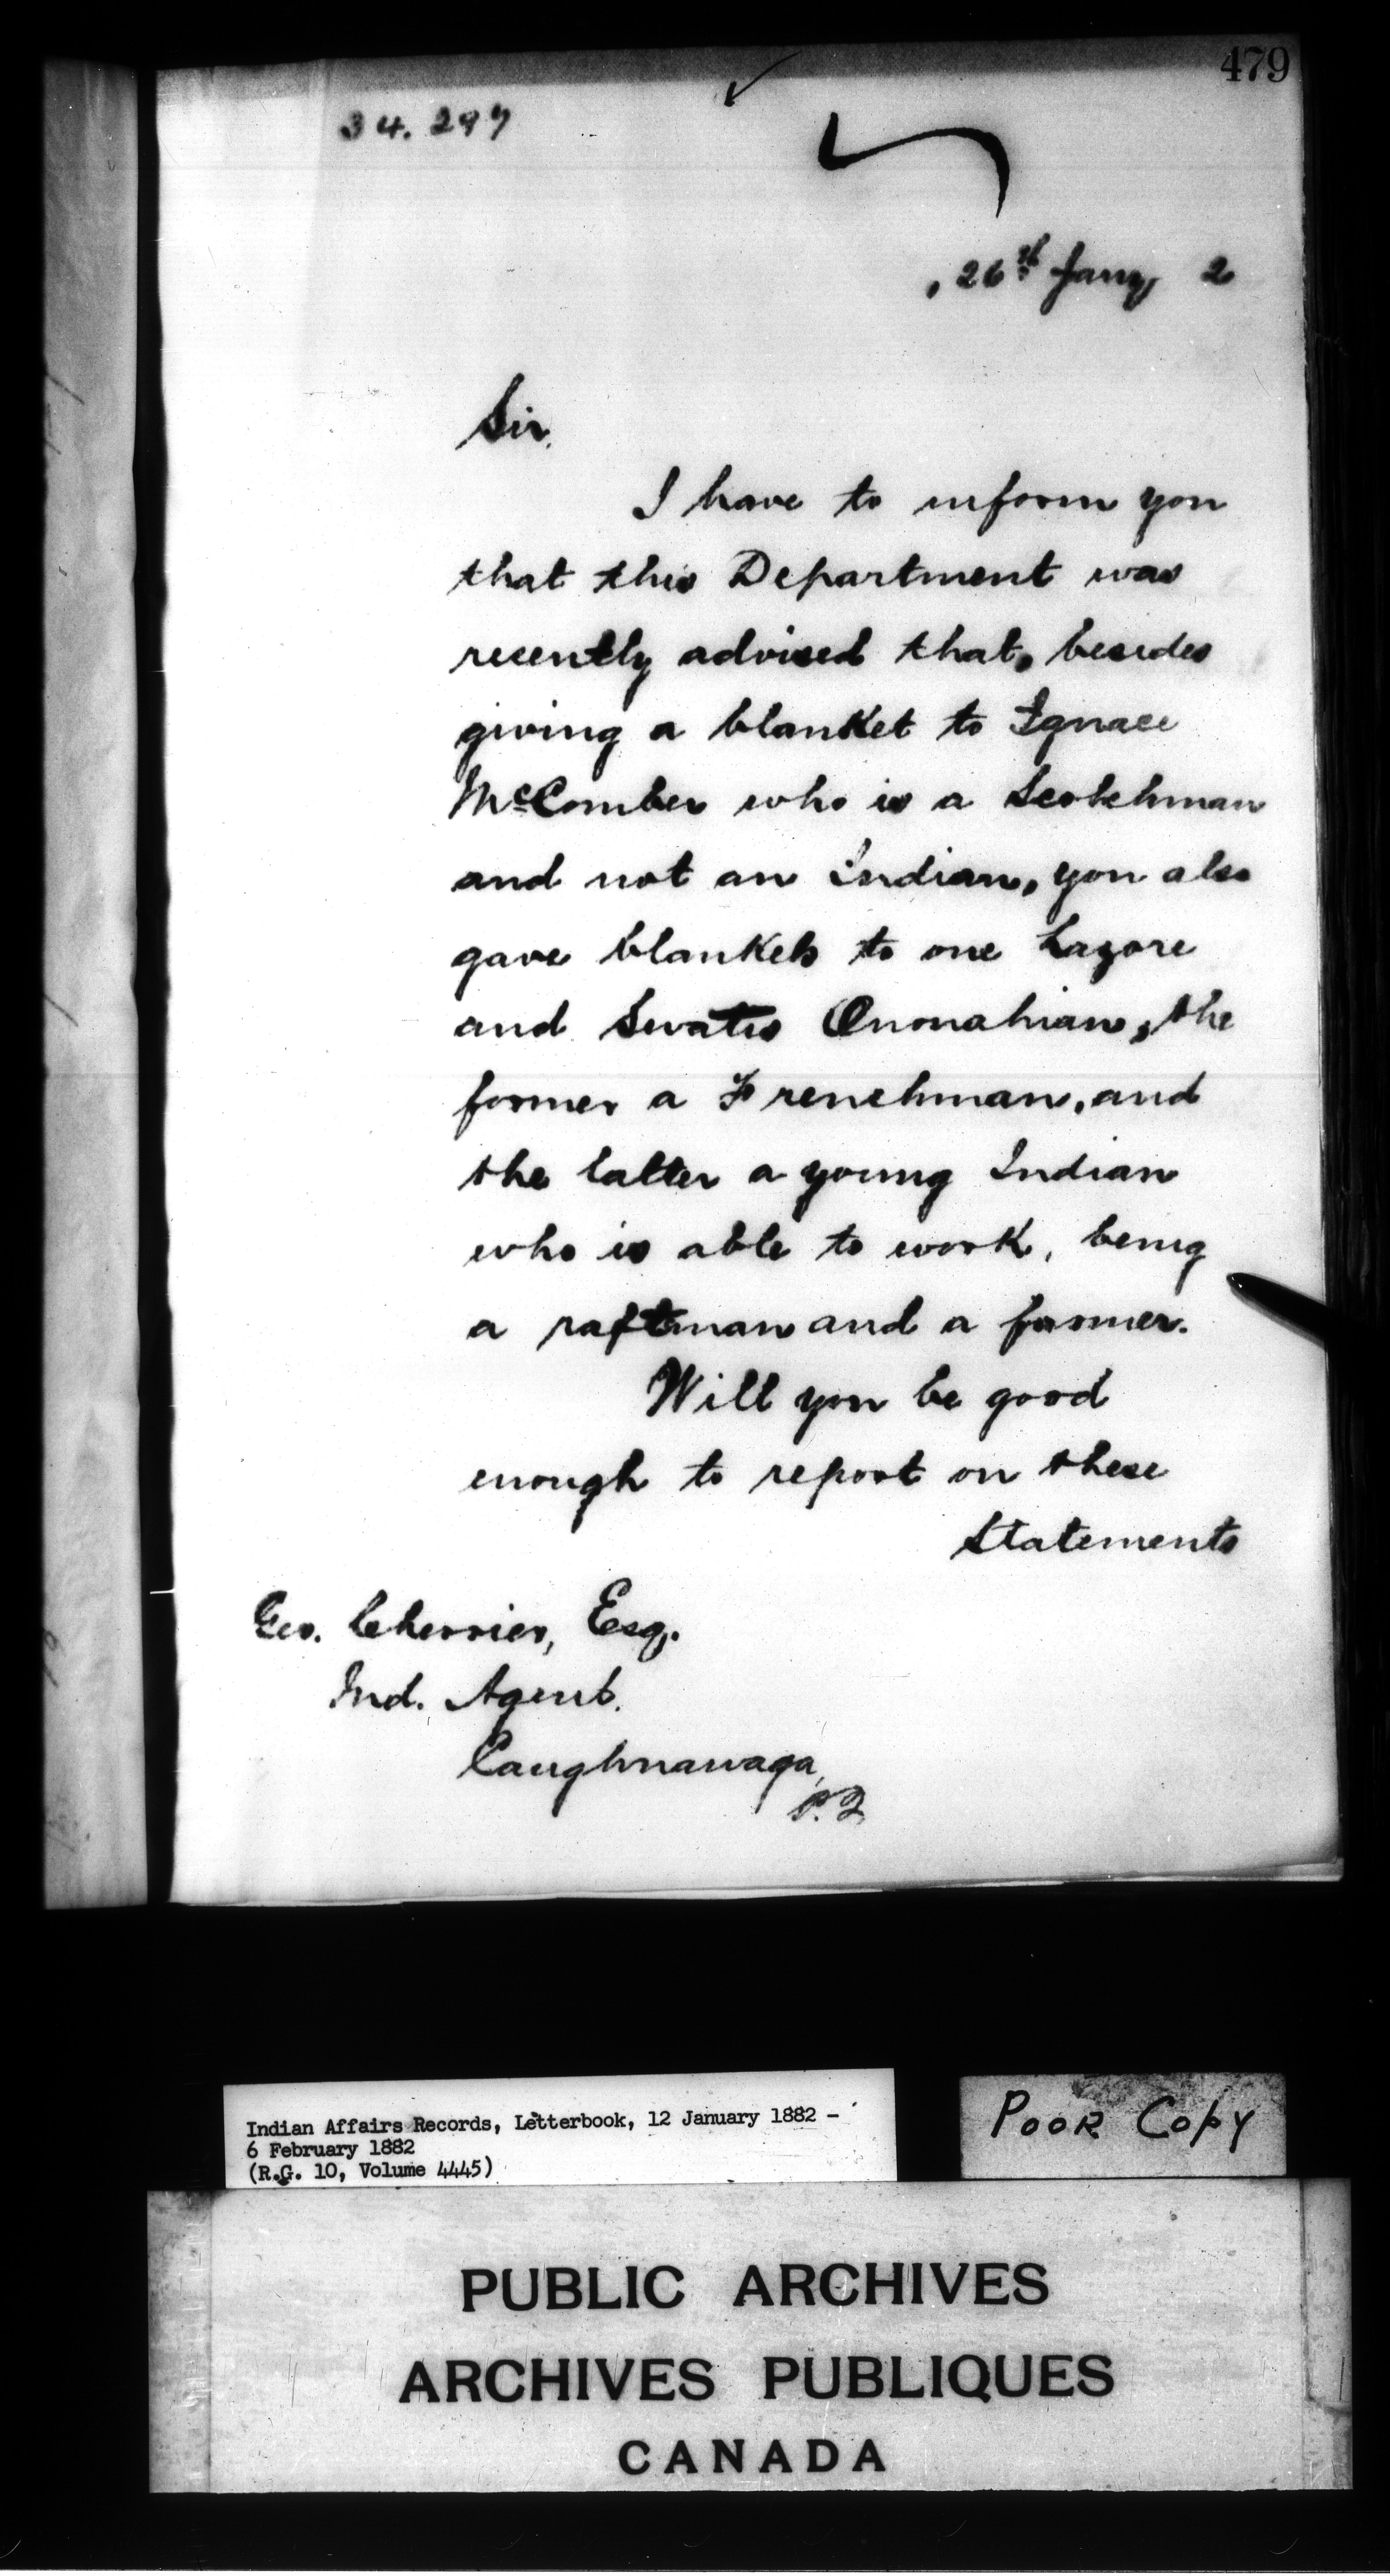 479
34.297
26th Jany 2
Sir,
I have to inform you
that this Department was
recently advised that, besides
giving a blanket to Ignace
McComber who is a Scotchman
and not an Indian, you also
gave blankets to one Lazore
and Swatis Ononahian, the
former a Frenchman, and
the latter a young Indian
who is able to work, being
a raftman and a farmer.
Will you be good
enough to report on these
Statements
Geo. Cherrier, Esq.
Ind. Agent.
Caughnawaga,
P.Q
Indian Affairs Records, Letterbook, 12 January 1882 -
6 February 1882
(R.G. 10, Volume 4445)
POOR COPY
PUBLIC ARCHIVES
ARCHIVES PUBLIQUES
CANADA